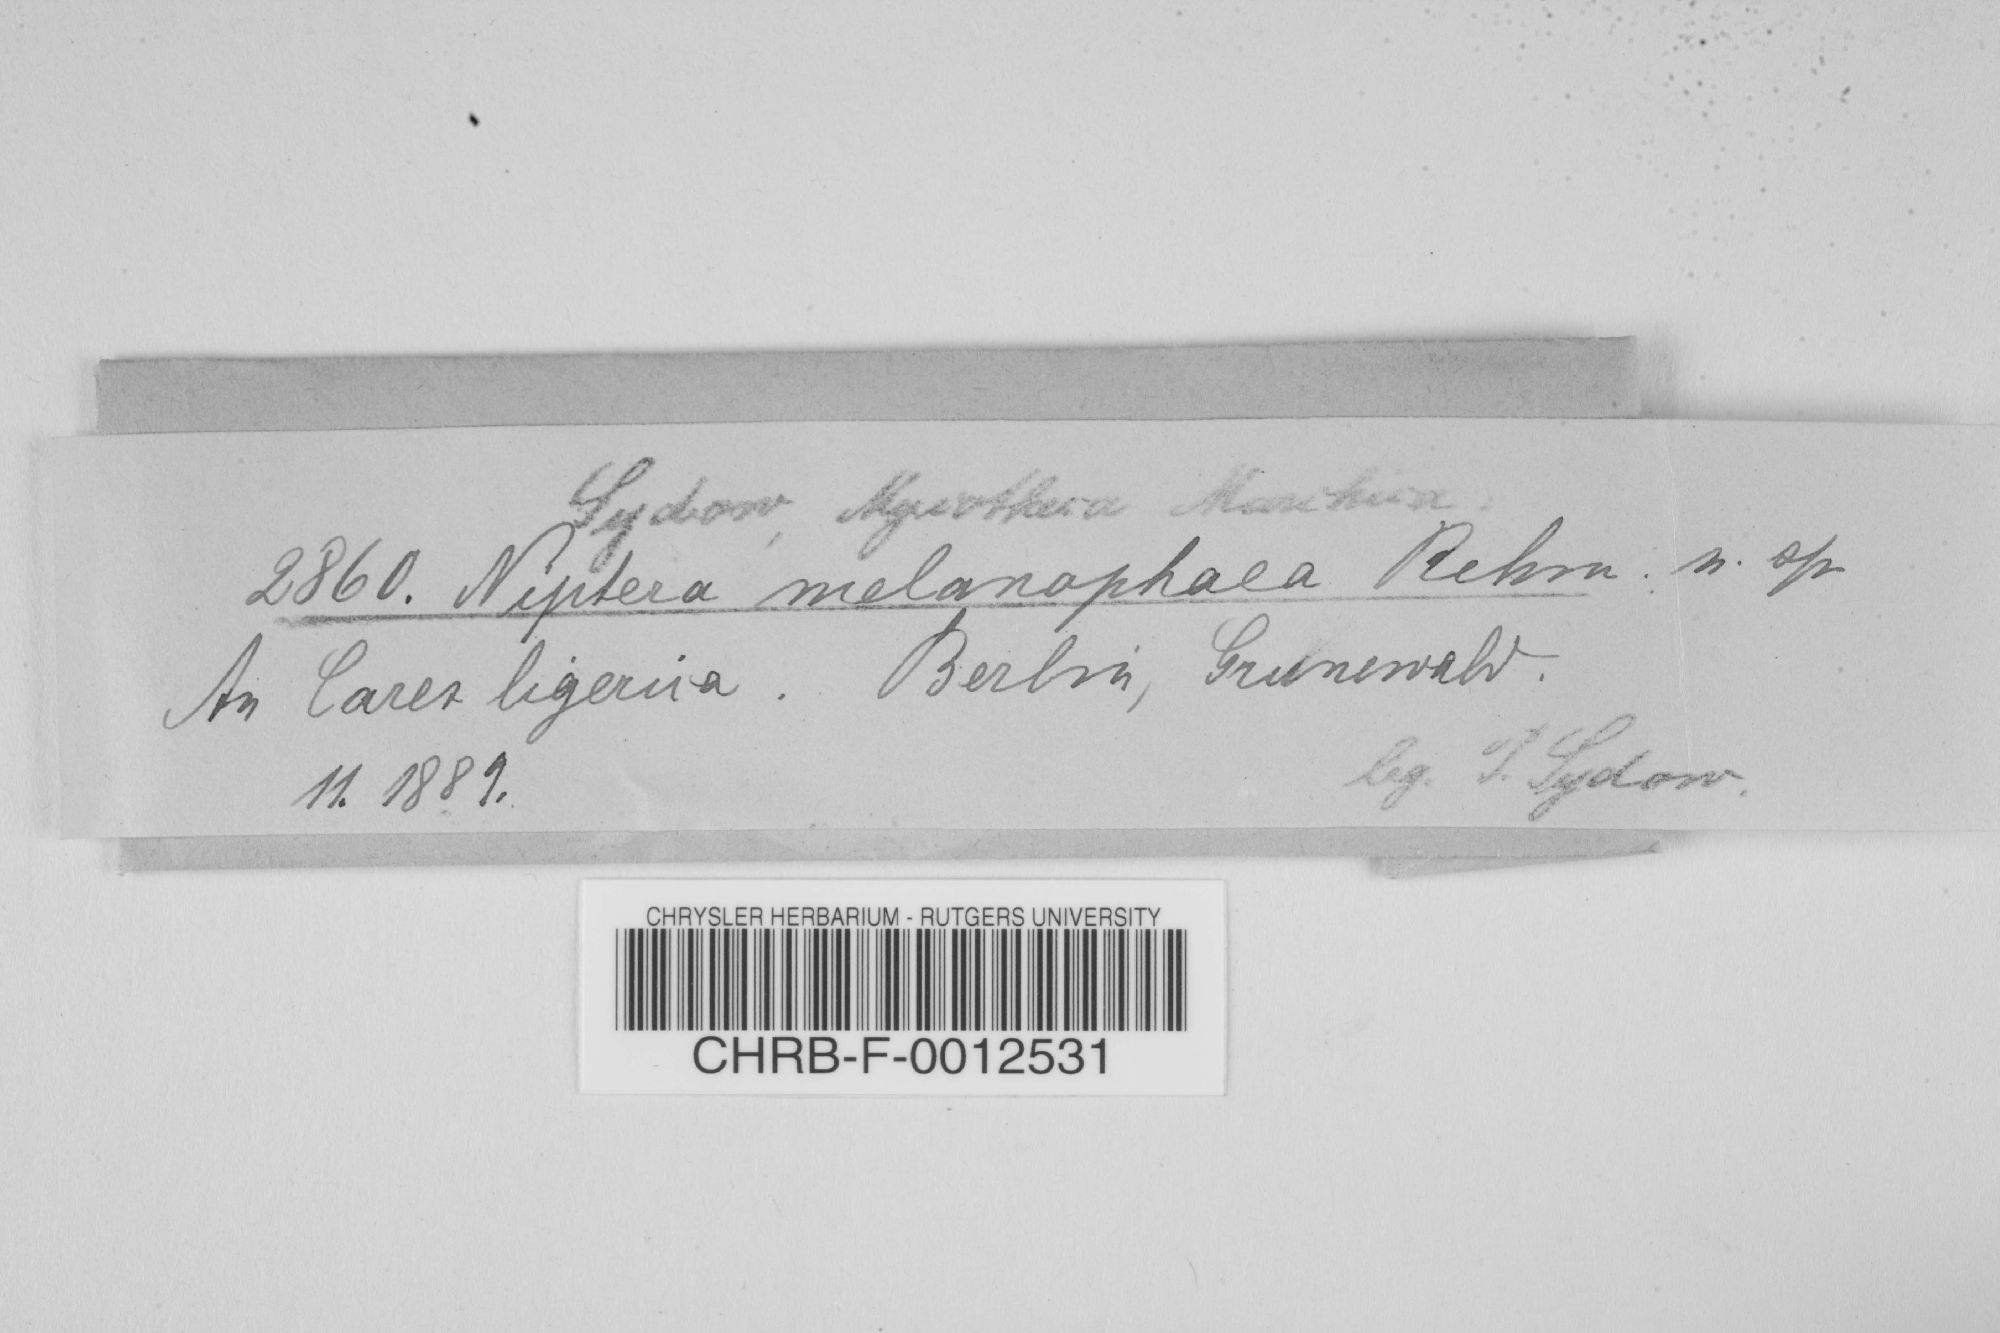 Sydow, Mycotheca Marchica.
2860. Niptera melanophaea Rehm. n. sp
An Carex ligerica. Berlin, Grunewald.
11. 1889.
leg. P. Sydow.
CHRYSLER HERBARIUM - RUTGERS UNIVERSITY
CHRB-F-0012531